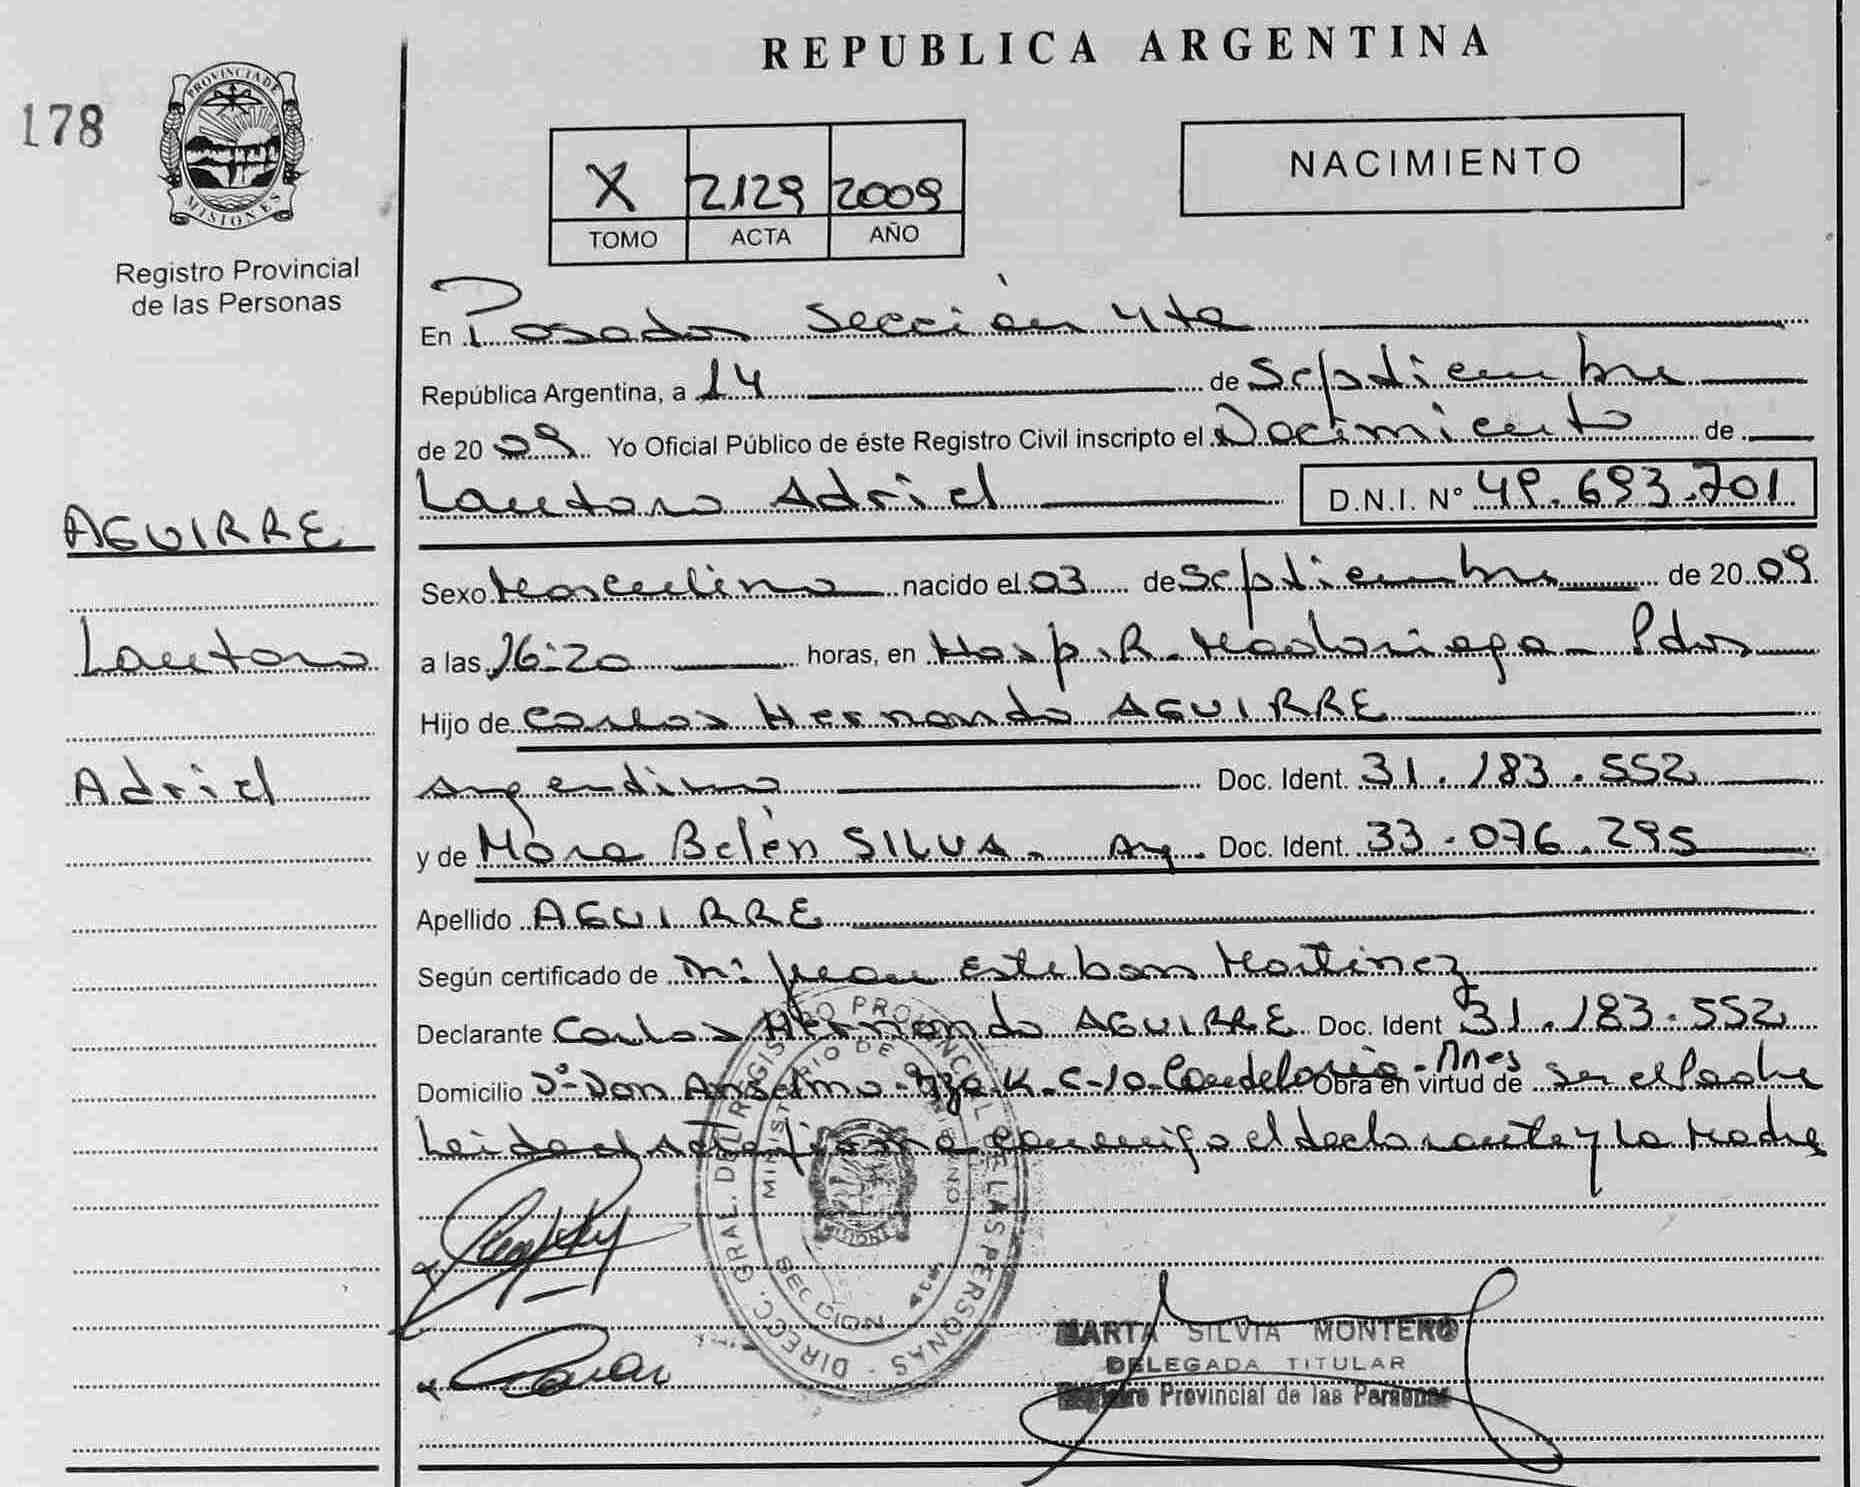 REPUBLICA ARGENTINA
178
PROVINCIA DE
MISIONES
Registro Provincial
de las Personas
X 2129 2009
TOMO ACTA AÑO
NACIMIENTO
En Posadas Sección 4ta
República Argentina, a 14 de Septiembre
de 20 09 Yo Oficial Público de éste Registro Civil inscripto el Nacimiento de
Lautaro Adriel D.N.I. N° 49.693.701
AGUIRRE
Lautaro
Adriel
Sexo Masculino nacido el 03 de Septiembre de 20 09
a las 16:20 horas, en Hosp. R. Madariaga - Pdas
Hijo de Carlos Hernando AGUIRRE
Argentino Doc. Ident. 31.183.552
y de Belén SILVA - Arg. Doc. Ident. 33.076.295
Apellido AGUIRRE
Según certificado de Juan Esteban Martinez
Declarante Carlos Hernando AGUIRRE Doc. Ident 31.183.552
Domicilio Don Anselmo - Mza. K - C-10 - Candelaria - Mnes Obra en virtud de ser el Padre
Leida el Acta firma conmigo el declarante y la Madre
DIRECC. GRAL. DEL REGISTRO PROVINCIAL DE LAS PERSONAS
MINISTERIO DE GOBIERNO
SECCION 4ta
MISIONES
MARTA SILVIA MONTERO
DELEGADA TITULAR
Registro Provincial de las Personas